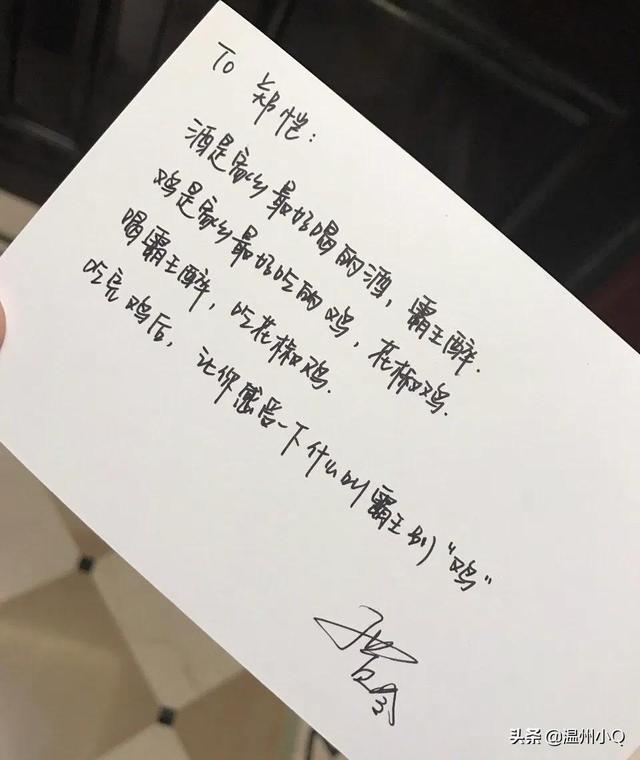 To 郑恺:
酒是家乡最好喝的酒,霸王醉.
鸡是家乡最好吃的鸡,花椒鸡.
喝霸王醉,吃花椒鸡.
吃完鸡后,让你感受一下什么叫霸王别“鸡”
头条 @温州小Q